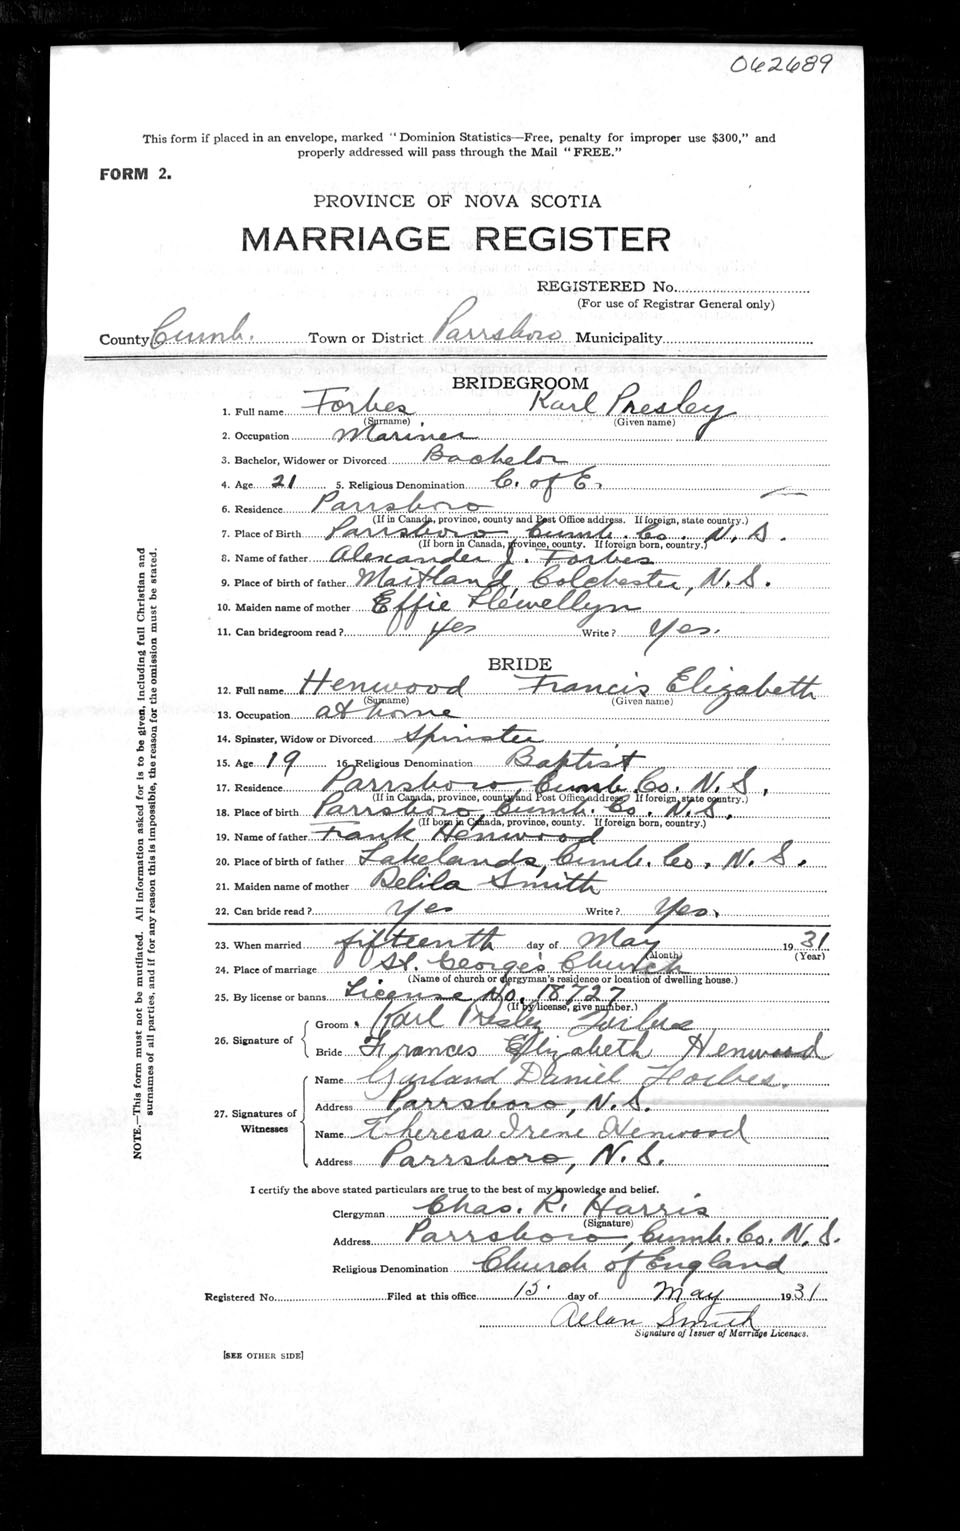 062689
This form if placed in an envelope, marked "Dominion Statistics—Free, penalty for improper use $300," and
properly addressed will pass through the Mail "FREE."
FORM 2.
PROVINCE OF NOVA SCOTIA
MARRIAGE REGISTER
REGISTERED No.
(For use of Registrar General only)
County Cumb. Town or District Parrsboro Municipality
BRIDEGROOM
1. Full name Forbes Karl Presley
(Surname) (Given name)
2. Occupation Mariner
3. Bachelor, Widower or Divorced Bachelor
4. Age 21 5. Religious Denomination C. of E.
6. Residence Parrsboro
(If in Canada, province, county and Post Office address. If foreign, state country.)
7. Place of Birth Parrsboro Cumb. Co. N.S.
(If born in Canada, province, county. If foreign born, country.)
8. Name of father Alexander J. Forbes
9. Place of birth of father Maitland, Colchester, N.S.
10. Maiden name of mother Effie Llewellyn
11. Can bridegroom read? yes Write? Yes.
BRIDE
12. Full name Henwood Francis Elizabeth
(Surname) (Given name)
13. Occupation at home
14. Spinster, Widow or Divorced Spinster
15. Age 19 16. Religious Denomination Baptist
17. Residence Parrsboro, Cumb. Co. N.S.
(If in Canada, province, county and Post Office address. If foreign, state country.)
18. Place of birth Parrsboro, Cumb. Co. N.S.
(If born in Canada, province, county. If foreign born, country.)
19. Name of father Frank Henwood
20. Place of birth of father Lakelands, Cumb. Co. N.S.
21. Maiden name of mother Delila Smith
22. Can bride read? Yes Write? Yes.
23. When married fifteenth day of May 1931
(Month) (Year)
24. Place of marriage St. George's Church
(Name of church or clergyman's residence or location of dwelling house.)
25. By license or banns License No. 18727
(If by license, give number.)
26. Signature of
Groom Karl Presley Forbes
Bride Frances Elizabeth Henwood
27. Signatures of Witnesses
Name Garland Daniel Forbes.
Address Parrsboro, N.S.
Name Theresa Irene Henwood
Address Parrsboro, N.S.
I certify the above stated particulars are true to the best of my knowledge and belief.
Clergyman Chas. R. Harris
(Signature)
Address Parrsboro, Cumb. Co. N.S.
Religious Denomination Church of England
Registered No. Filed at this office 15. day of May 1931
Allan Smith
Signature of Issuer of Marriage Licenses.
[SEE OTHER SIDE]
NOTE.—This form must not be mutilated. All information asked for is to be given, including full Christian and
surnames of all parties, and if for any reason this is impossible, the reason for the omission must be stated.